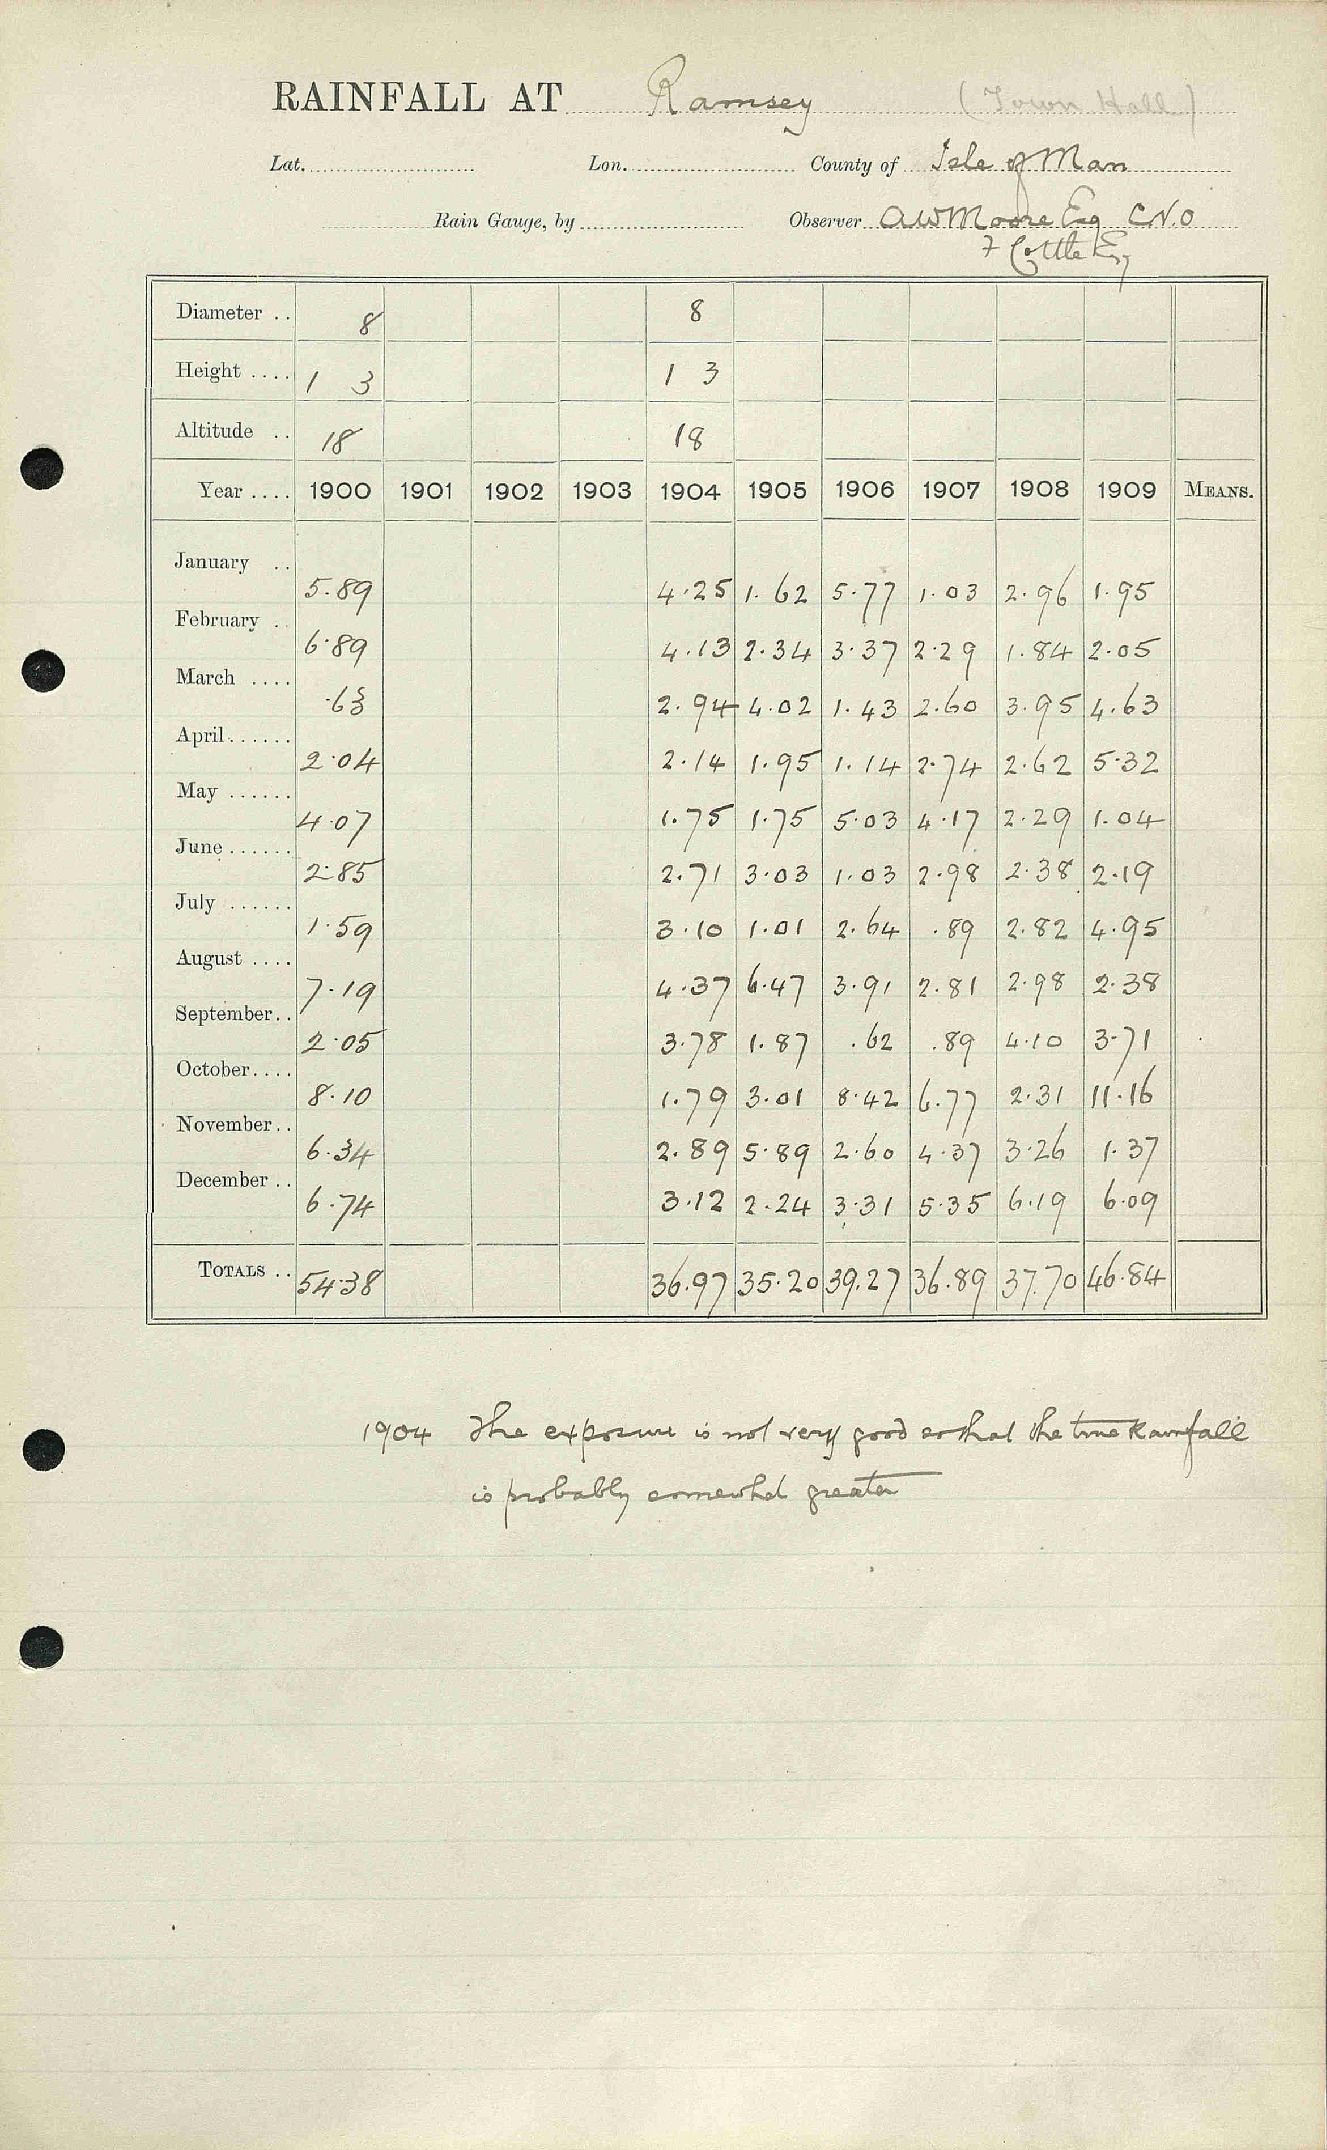 RAINFALL AT Ramsey (Town Hall)
Lat. Lon. County of Isle of Man
Rain Gauge, by Observer AW Moore Esq C.V.O
Cottle Esq
Diameter .. 8 8
Height .... 1 3 1 3
Altitude .. 18 18
Year .... 1900 1901 1902 1903 1904 1905 1906 1907 1908 1909 MEANS.
January .. 5.89 4.25 1.62 5.77 1.03 2.96 1.95
February .. 6.89 4.13 2.34 3.37 2.29 1.84 2.05
March .... .63 2.94 4.02 1.43 2.60 3.95 4.63
April...... 2.04 2.14 1.95 1.14 2.74 2.62 5.32
May ...... 4.07 1.75 1.75 5.03 4.17 2.29 1.04
June...... 2.85 2.71 3.03 1.03 2.98 2.38 2.19
July ...... 1.59 3.10 1.01 2.64 .89 2.82 4.95
August .... 7.19 4.37 6.47 3.91 2.81 2.98 2.38
September.. 2.05 3.78 1.87 .62 .89 4.10 3.71
October.... 8.10 1.79 3.01 8.42 6.77 2.31 11.16
November.. 6.34 2.89 5.89 2.60 4.37 3.26 1.37
December .. 6.74 3.12 2.24 3.31 5.35 6.19 6.09
TOTALS .. 54.38 36.97 35.20 39.27 36.89 37.70 46.84
1904 The exposure is not very good so that the true Rainfall
is probably somewhat greater